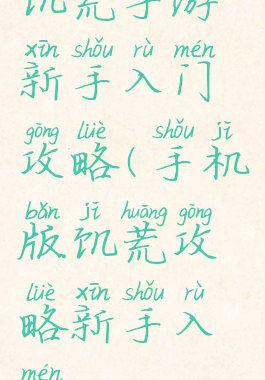 饥荒手游
xīn shǒu rù mén
新手入门
gōng lüè shǒu jī
攻略(手机
bǎn jī huāng gōng
版饥荒攻
lüè xīn shǒu rù
略新手入
mén